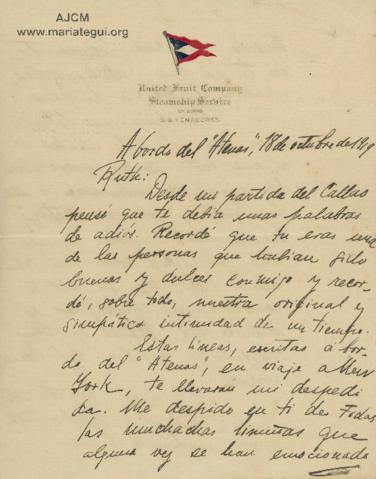 AJCM
www.mariategui.org
United Fruit Company
Steamship Service
A bordo del "Atenas", 18 de octubre de 1919
Ruth:
Desde mi partida del Callao
pensé que te debía unas palabras
de adiós. Recordé que tu eras una
de las personas que habían sido
buenas y dulces conmigo y recor-
dé, sobre todo, nuestra original y
simpática intimidad de un tiempo.
Estas líneas, escritas a bor-
do del "Atenas", en viaje a New
York, te llevaran mi despedi-
da. Me despido en ti de todas
las muchachas limeñas que
alguna vez se han emocionado